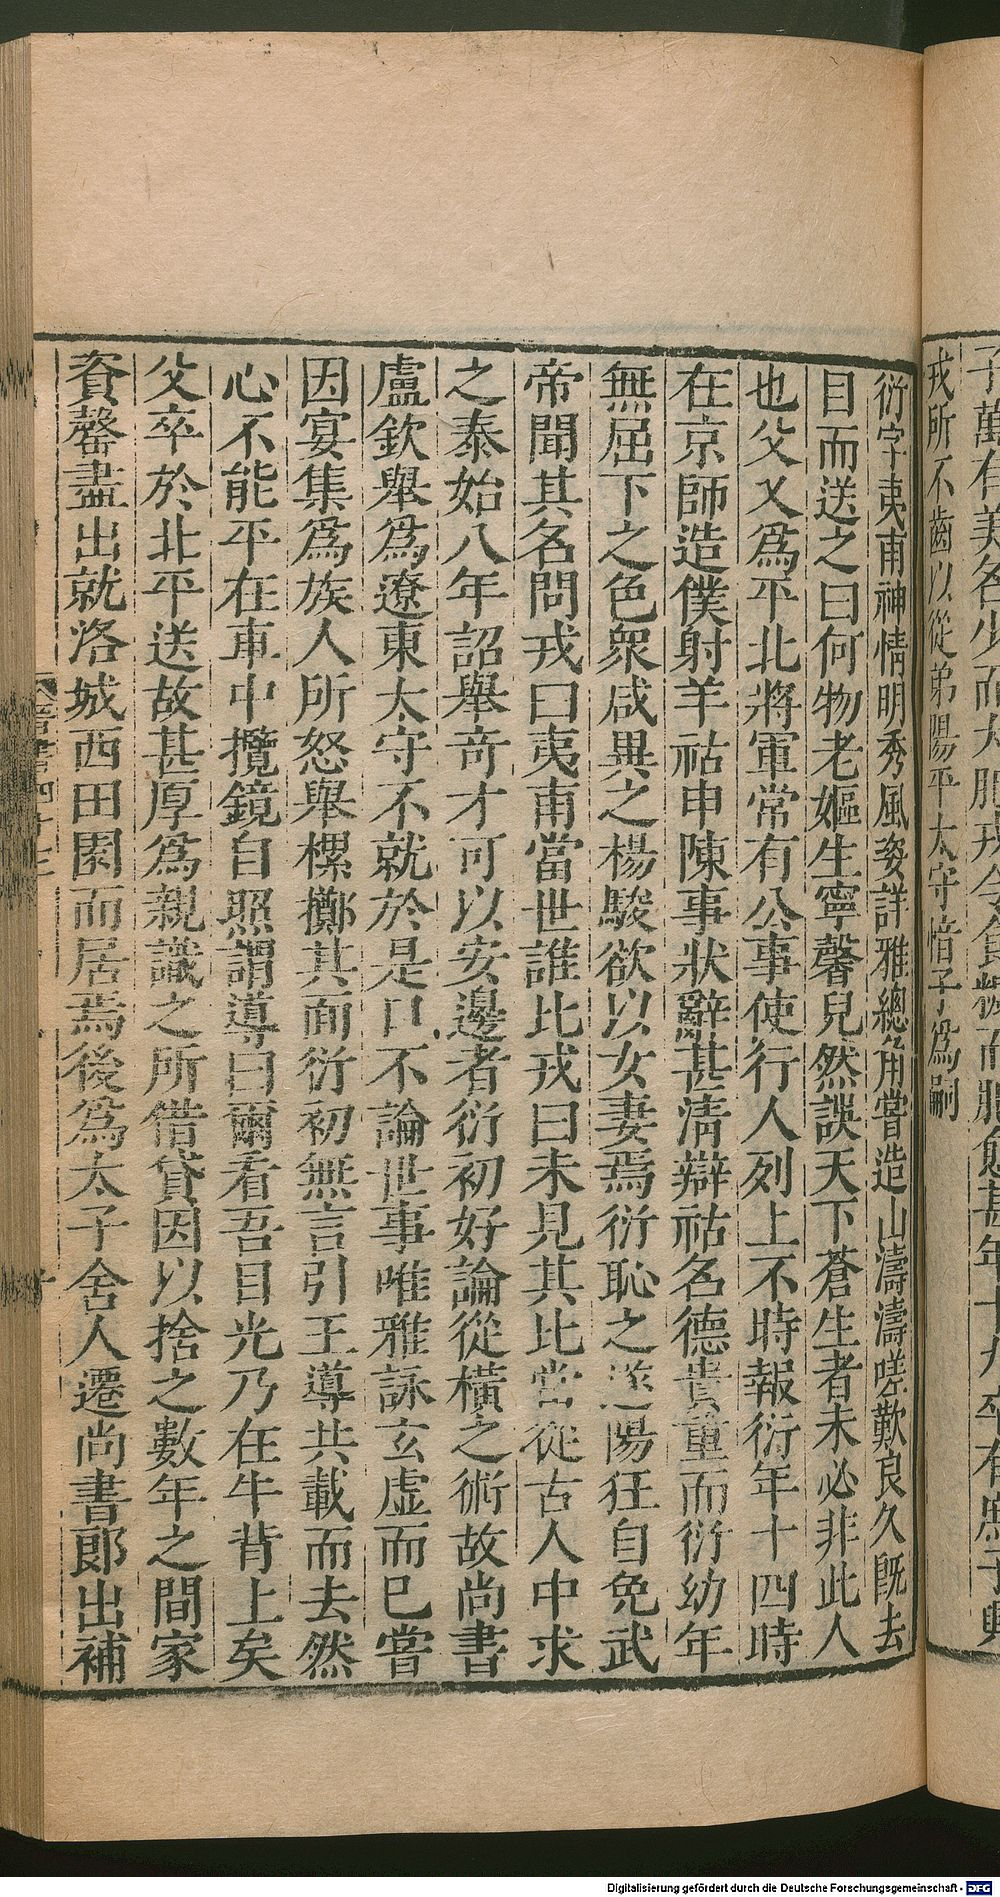 子萬有美名少而大肥戎令食糠而肥愈甚年十九卒有庶子興
戎所不齒以從弟陽平太守愔子爲嗣
衍字夷甫神情明秀風姿詳雅總角嘗造山濤濤嗟歎良久既去
目而送之曰何物老嫗生寧馨兒然誤天下蒼生者未必非此人
也父乂爲平北將軍常有公事使行人列上不時報衍年十四時
在京師造僕射羊祜申陳事狀辭甚清辯祜名德貴重而衍幼年
無屈下之色衆咸異之楊駿欲以女妻焉衍恥之遂陽狂自免武
帝聞其名問戎曰夷甫當世誰比戎曰未見其比當從古人中求
之泰始八年詔舉奇才可以安邊者衍初好論從橫之術故尚書
盧欽舉爲遼東太守不就於是口不論世事唯雅詠玄虛而已嘗
因宴集爲族人所怒舉樏擲其面衍初無言引王導共載而去然
心不能平在車中攬鏡自照謂導曰爾看吾目光乃在牛背上矣
父卒於北平送故甚厚爲親識之所借貸因以捨之數年之間家
資罄盡出就洛城西田園而居焉後爲太子舍人遷尚書郎出補
Digitalisierung gefördert durch die Deutsche Forschungsgemeinschaft - DFG